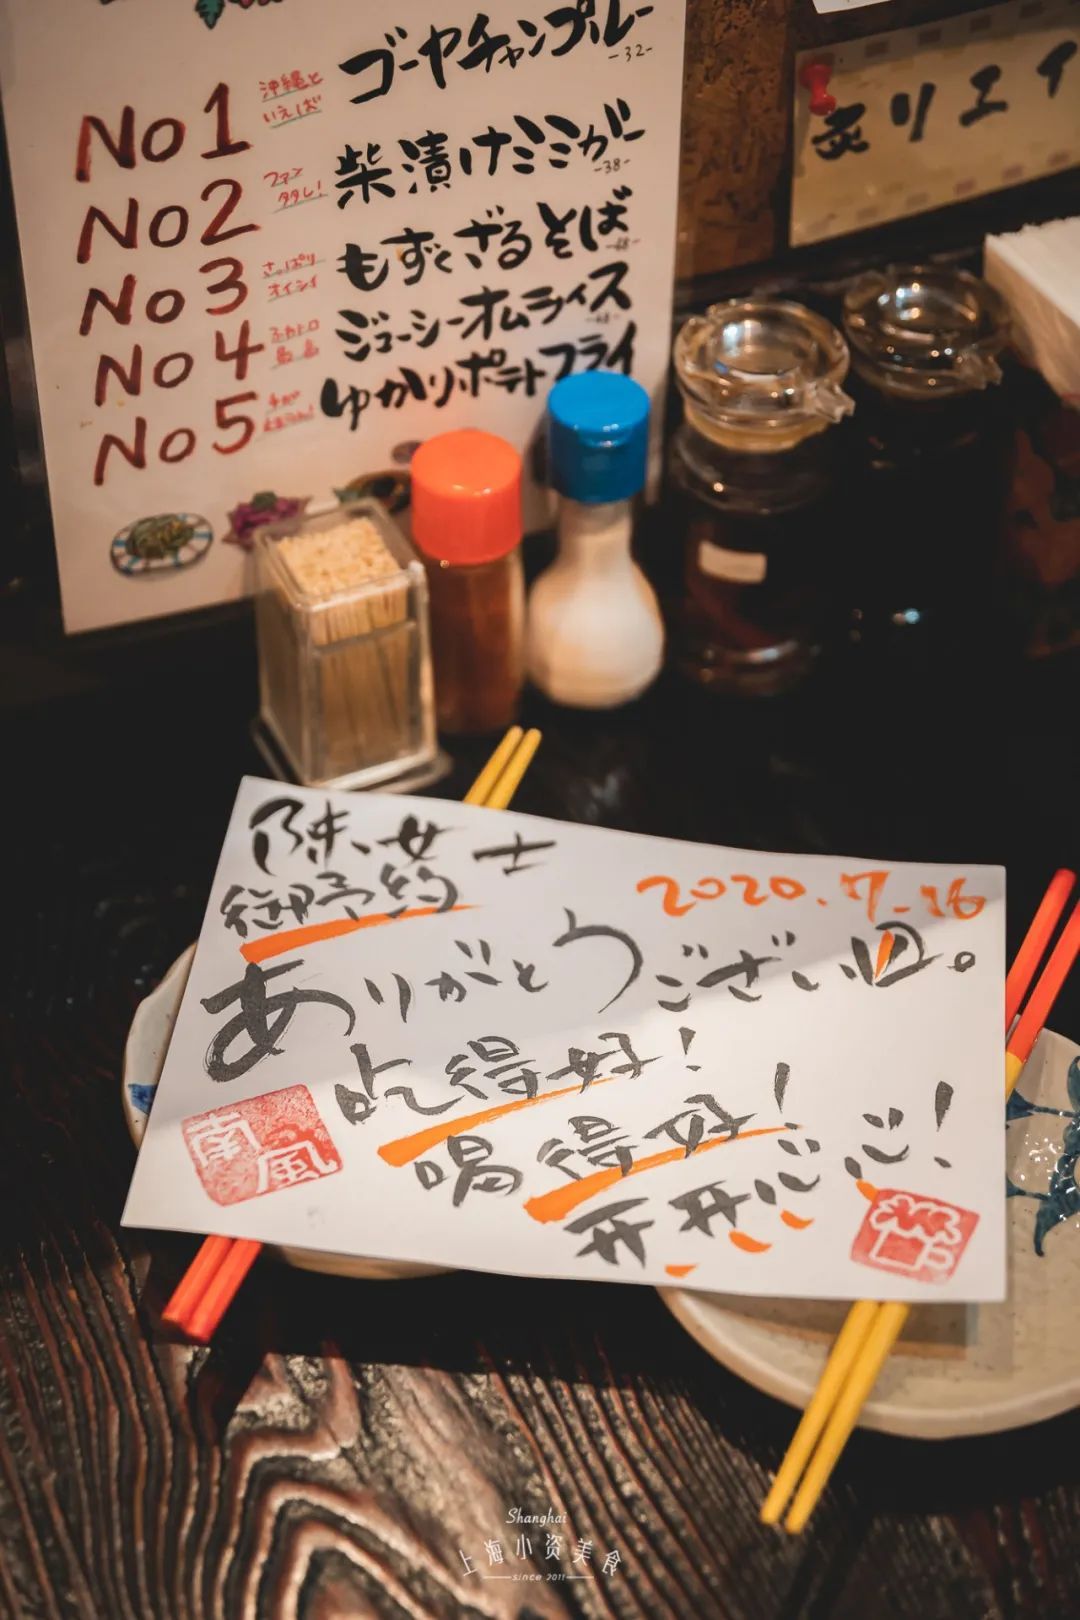 No1 沖縄と いえば ゴーヤチャンプルー -32-
No2 ファン タタし! 柴漬けミミガー -38-
No3 さっぱり オイシイ もずくざるそば -48-
No4 ふわトロ 最高 ジューシーオムライス
No5 ゆかりポテトフライ
炙りエイ
陈女士
御予約
2020.7.16
ありがとうございます。
吃得好!
喝得好!
开开心心!
南風
Shanghai
上海小资美食
since 2011